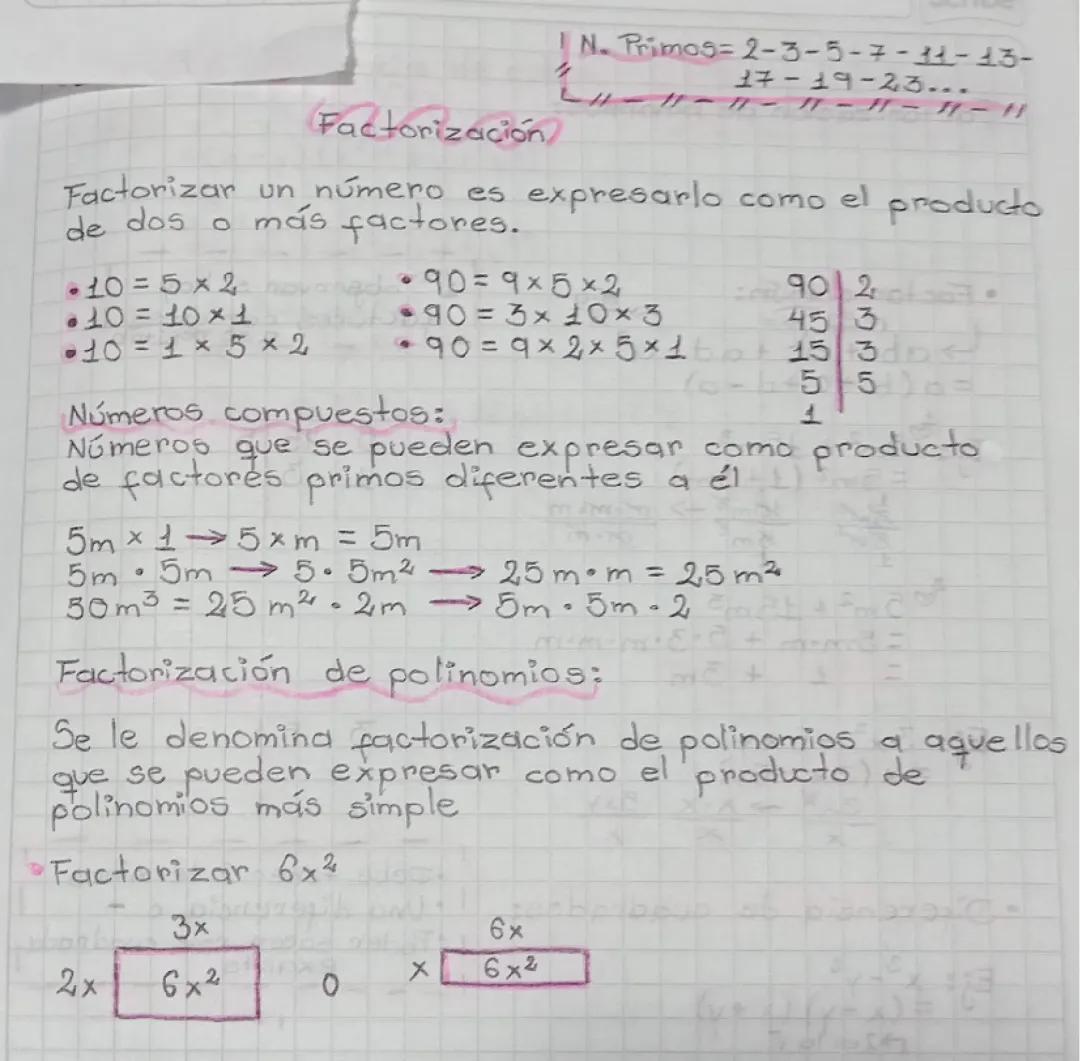 N. Primos = 2 - 3 - 5 - 7 - 11 - 13 -
17 - 19 - 23...
Factorización
Factorizar un número es expresarlo como el producto
de dos o más factores.
• 10 = 5 × 2
• 10 = 10 × 1
• 10 = 1 × 5 × 2
• 90 = 9 × 5 × 2
• 90 = 3 × 10 × 3
• 90 = 9 × 2 × 5 × 1
90 | 2
45 | 3
15 | 3
5 | 5
1
Números compuestos:
Números que se pueden expresar como producto
de factores primos diferentes a él
5m × 1 → 5 × m = 5m
5m • 5m → 5 • 5m² → 25 m • m = 25 m²
50 m³ = 25 m² • 2m → 5m • 5m • 2
Factorización de polinomios:
Se le denomina factorización de polinomios a aquellos
que se pueden expresar como el producto de
polinomios más simple
• Factorizar 6x²
3x
2x 6x²
O
6x
x 6x²